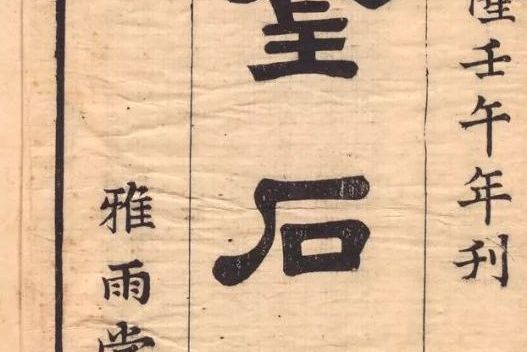 隆壬午年刊
石
雅雨堂